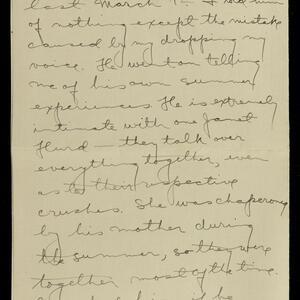 last March 1st. I told him
of nothing except the mistake
caused by my dropping my
voice. He went on telling
me of his own summer
experiences. He is extremely
intimate with one Janet
Hurd — they talk over
everything together, even
as to their respective
crushes. She was chaperoned
by his mother during
the summer, so they were
together most of the time.